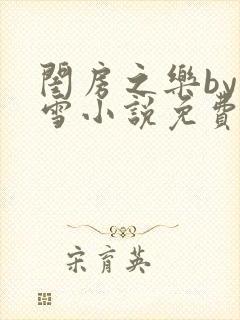 閨房之樂by
雪小說免費
宋育英